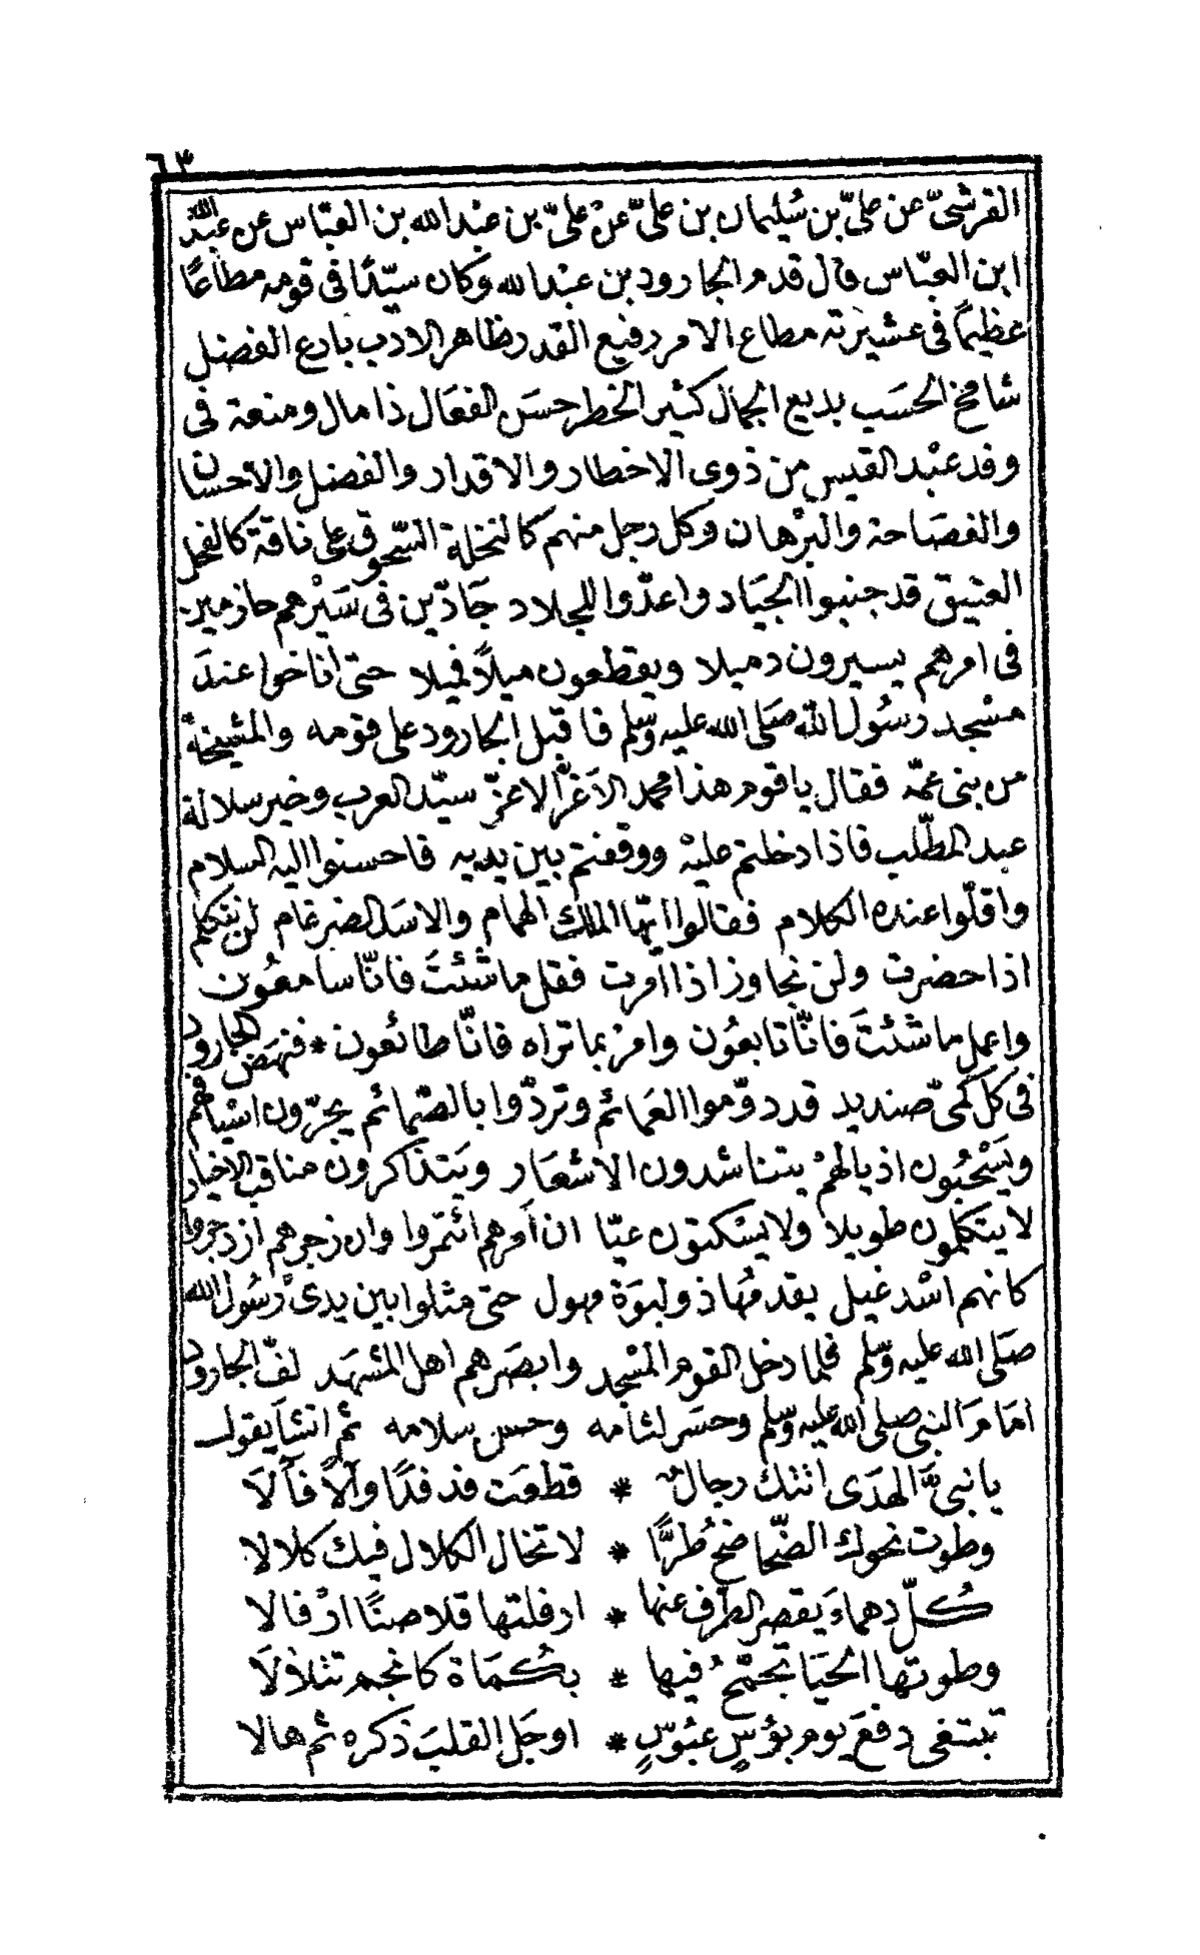 ٦٣
القرشىّ عن علىّ بن سُليمان بن علىّ عن علىّ بن عبد الله بن العبّاس عن عبد الله
ابن العبّاس قال قدم الجارود بن عبد الله وكان سيّدًا فى قومه مطاعًا
عظيمًا فى عشيرته مطاع الامر رفيع القدر ظاهر الادب بارع الفضل
شامخ الحسَب بديع الجمال كثير الخطر حسَن الفعَال ذا مال ومنعة فى
وفد عبْد القيس من ذوى الاخطار والاقدار والفضل والاحسان
والفصَاحة والبرْهان وكل رجل منهم كالنخلة السّحوق على ناقة كالفحل
العتيق قد جنبوا الجيَاد واعدّوا للجلاد جَادّين فى سَيْرهم حازمين
فى امرهم يسيرون ذميلا ويقطعون ميلاً فميلا حتى اناخوا عندَ
مسْجد رسُول الله صَلى الله عليه وسَلم فاقبل الجارود على قومه والمشيخة
من بنى عمّه فقال يا قوم هذا محمد الاَغرّ الاعزّ سيّد العرب وخير سلالة
عبد المطّلب فاذا دخلتم عليْه ووقفتم بين يديه فاحسنوا اليه السلام
واقلّوا عنده الكلام فقالوا ايّها الملك الهمام والاسَد الضرغام لن نتكلم
اذا حضرت ولن نجاوز اذا امرت فقل ما شئتَ فانّا سامعُون
واعمل ما شئتَ فانّا تابعُون وامرْ بما تراه فانّا طائعون * فنهَض الجارود
فى كل كمىّ صنديد قد دوّموا العَمائم وتردّوا بالصّمائم يجرّون اسْيافهم
ويَسْحبُون اذيالهمْ يتناشدون الاشعَار ويَتذاكرون مناقب الاخيار
لا يتكلمون طويلا ولا يسْكتون عيّا ان اَمرهم ائتمروا وان زجرهم ازدجروا
كانهم اسْد غيل يقدمُها ذو لبوَة مهول حتى مثلوا بين يدىْ رسُول الله
صَلى الله عليه وسَلم فلما دخل القوم المسْجد وابصَرهم اهل المشهَد لفّ الجارود
امَامَ النبى صلى الله عليه وسلم وحسَر لثامه وحسن سلامه ثم انشأ يقول
يا نبىَّ الهدَى اتتك رجالٌ * قطعَت فدفدًا وآلاً فآلاَ
وطوت نحوك الضّحاضحَ طُرًّا * لا تخال الكلال فيك كلالا
كُلّ دهماءَ يقصر الطرف عنها * ارقلتها قلاصنًا ارْقالا
وطوتها الجيَاد تجمَحُ فيها * بكُمَاة كانجم تتلاْلاَ
تبتغى دفعَ يوم بؤسٍ عبُوسٍ * اوجَل القلبَ ذكره ثم هالا